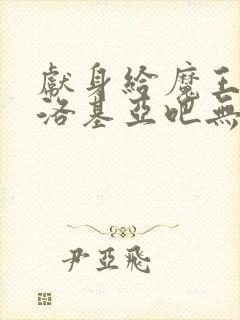 獻身給魔王
洛基亞吧無
尹亞飛